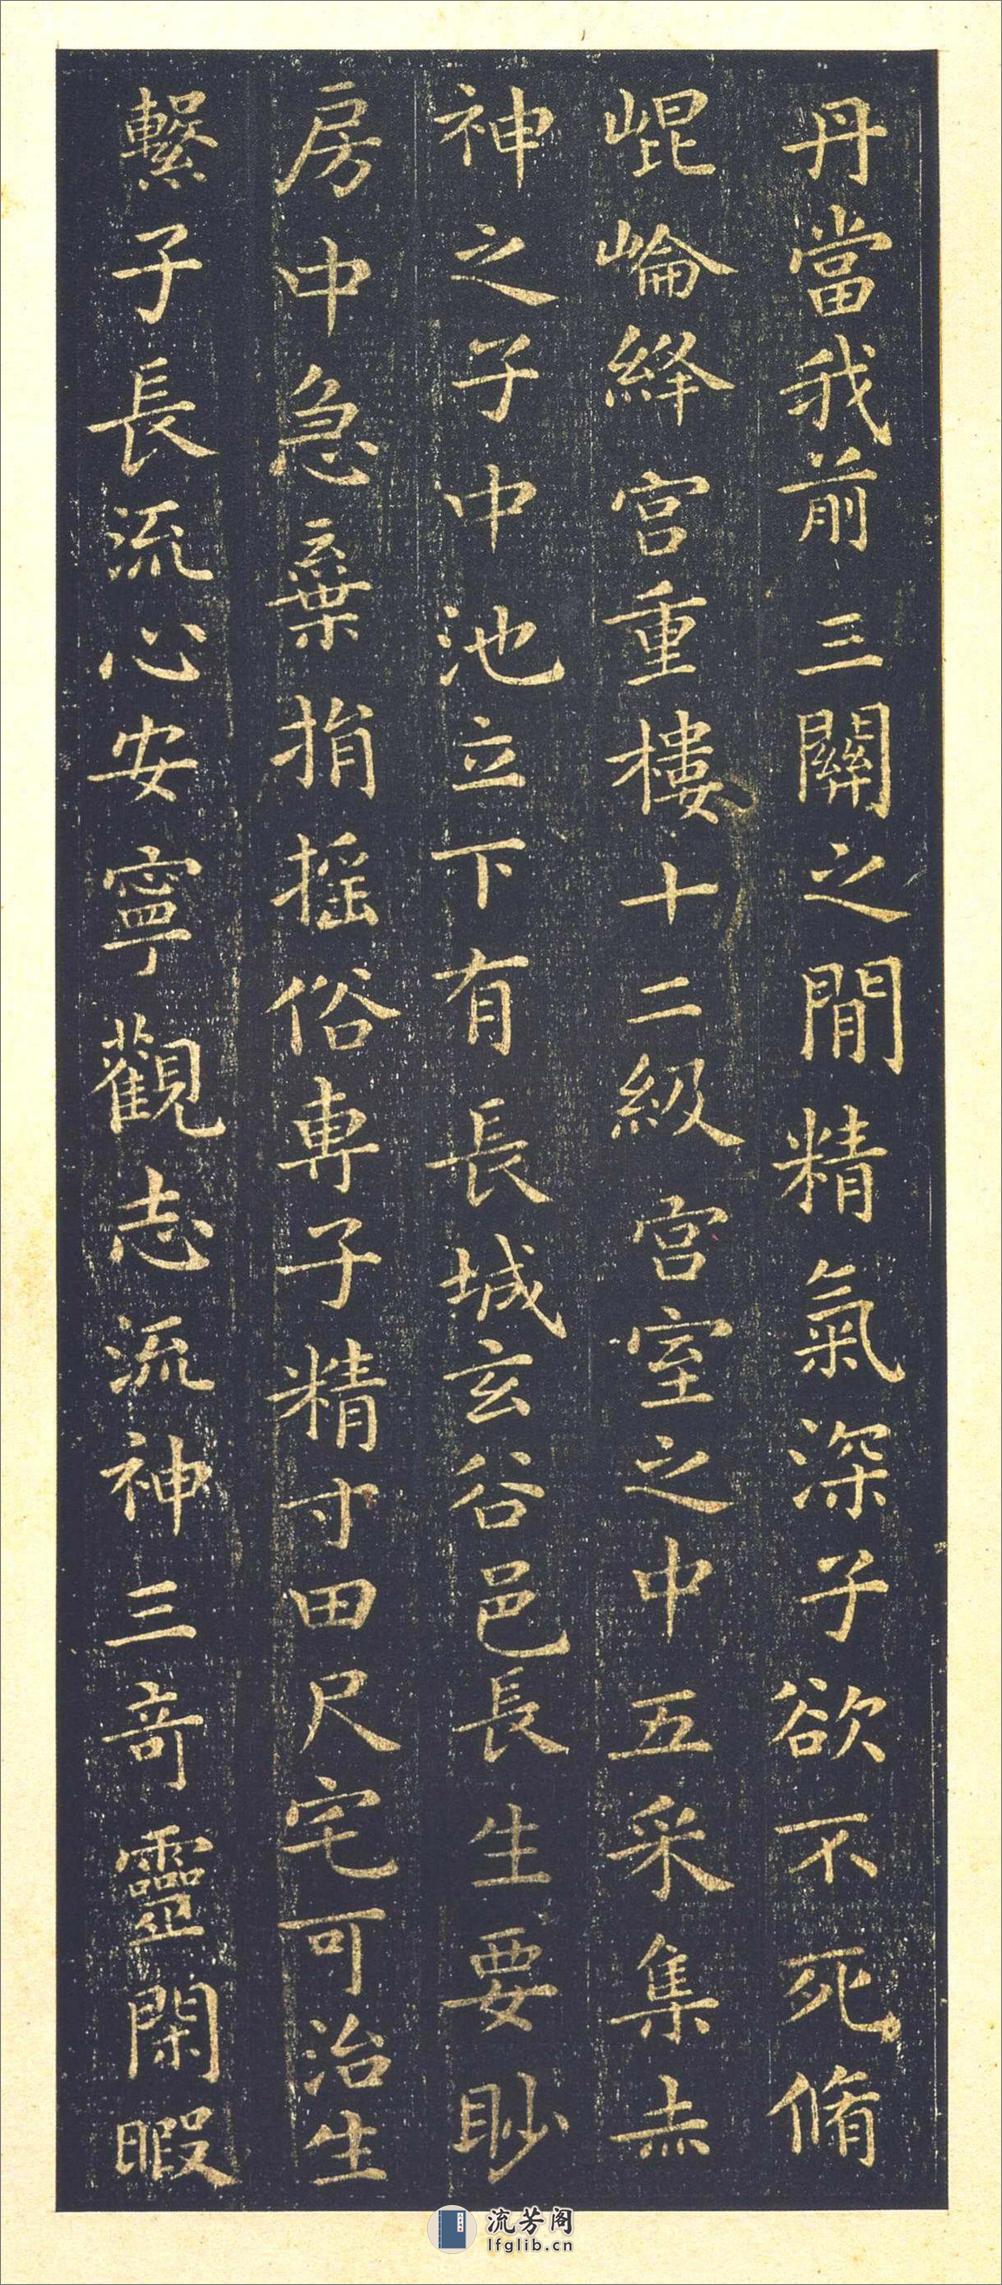 丹當我前三關之閒精氣深子欲不死脩
崐崘絳宮重樓十二級宮室之中五采集赤
神之子中池立下有長城玄谷邑長生要眇
房中急棄捐搖俗專子精寸田尺宅可治生
繫子長流心安寧觀志流神三奇靈閑暇
流芳阁
lfglib.cn